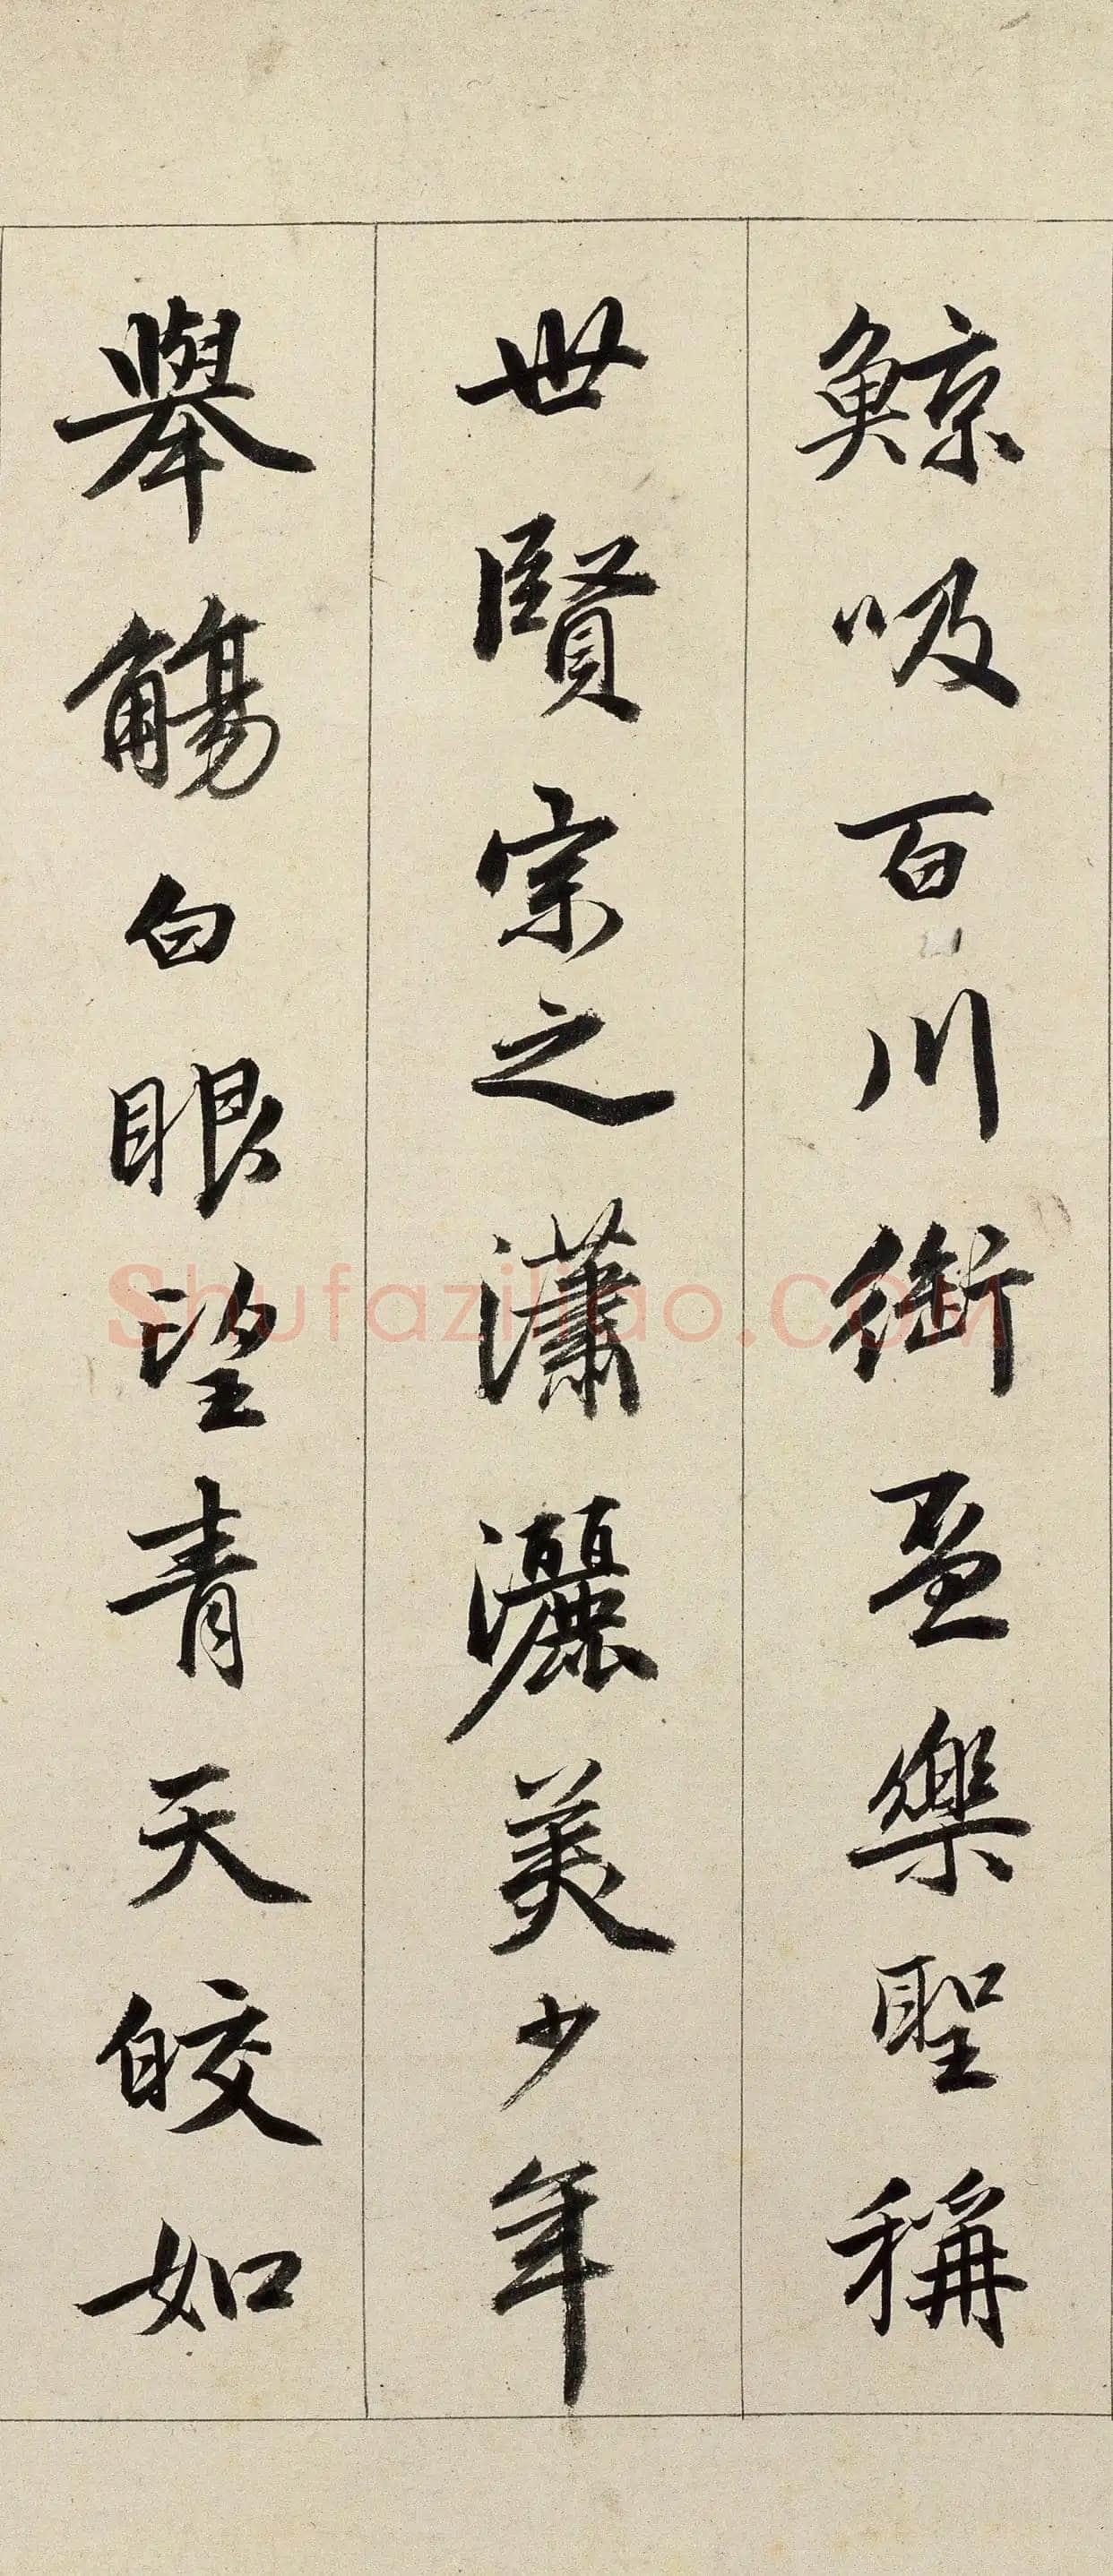 鯨吸百川銜盃樂聖稱
世賢宗之瀟灑美少年
舉觴白眼望青天皎如
Shufaziliao.com